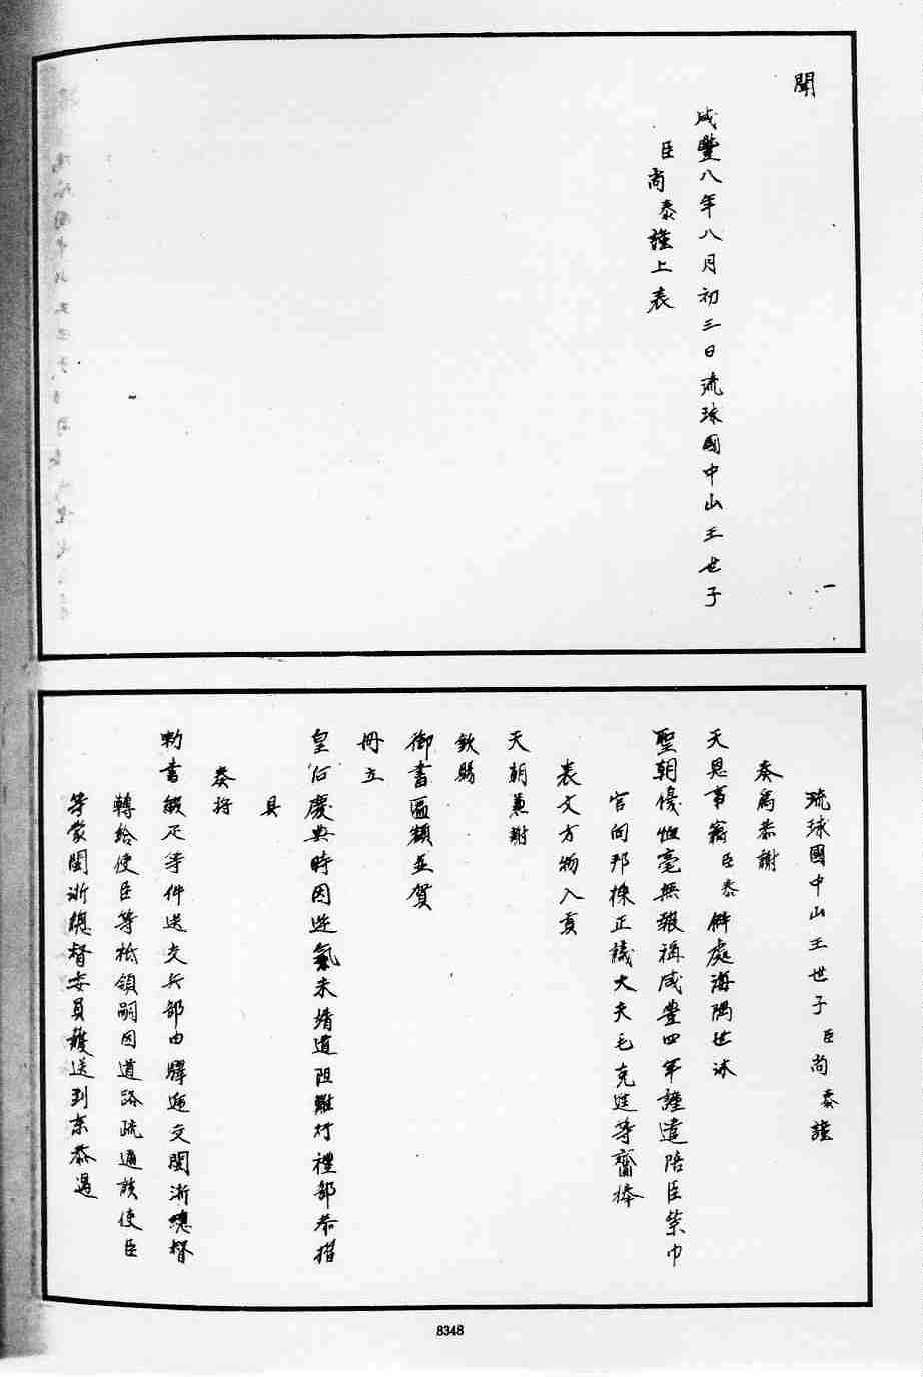 聞
咸豐八年八月初三日流球國中山王世子
臣尚泰謹上表
琉球國中山王世子臣尚泰謹
奏爲恭謝
天恩事竊臣泰僻處海隅世沐
聖朝懷恤毫無報稱咸豊四年謹遣陪臣紫巾
官向邦棟正議大夫毛克進等齎捧
表文方物入貢
天朝兼謝
欽賜
御書匾額並賀
冊立
皇后慶典時因逆氣未靖道阻難行禮部恭摺
具
奏將
勅書緞疋等件送交兵部由驛遞交閩浙總督
轉給使臣等祗領嗣因道路疏通該使臣
等蒙閩浙總督委員護送到京恭遇
8348